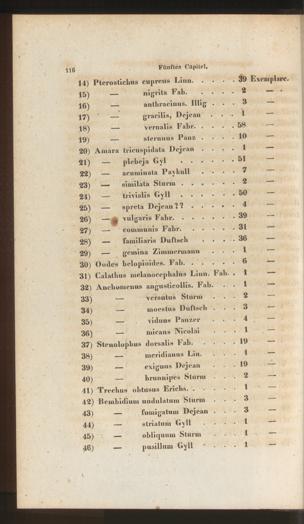 116 Fünftes Capitel.
14) Pterostichus cupreus Linn. . . . . 39 Exemplare.
15) — nigrita Fab. . . . . 2 —
16) — anthracinus. Illig . 3 —
17) — gracilis, Dejean . . 1 —
18) — vernalis Fabr. . . . 58
19) — sternuus Panz . . 10 —
20) Amara tricuspidata Dejean . . . . 1 —
21) — plebeja Gyl . . . . . 51 —
22) — acuminata Paykull . . . 7 —
23) — similata Sturm . . . . 2 —
24) — trivialis Gyll . . . . . 50 —
25) — spreta Dejean?? . . . . 4 —
26) — vulgaris Fabr. . . . . . 39 —
27) — communis Fabr. . . . . 31 —
28) — familiaris Duftsch . . . 36 —
29) — gemina Zimmermann . . 1 —
30) Oodes helopioides. Fab. . . . . . 6 —
31) Calathus melanocephalus Linn. Fab. . 1 —
32) Anchomenus angusticollis. Fab. . . . 1 —
33) — versutus Sturm . . 2 —
34) — moestus Duftsch . . 3 —
35) — viduus Panzer . . 4 —
36) — micans Nicolai . . 1 —
37) Stenolophus dorsalis Fab. . . . . 19 —
38) — meridianus Lin. . . . 1 —
39) — exiguus Dejean . . . 19 —
40) — brunnipes Sturm . . 2 —
41) Trechus obtusus Erichs. . . . . . 1 —
42) Bembidium undulatum Sturm . . . 3 —
43) — fumigatum Dejean . . 3 —
44) — striatum Gyll . . . . 1 —
45) — obliquum Sturm . . . 1 —
46) — pusillum Gyll . . . . 1 —